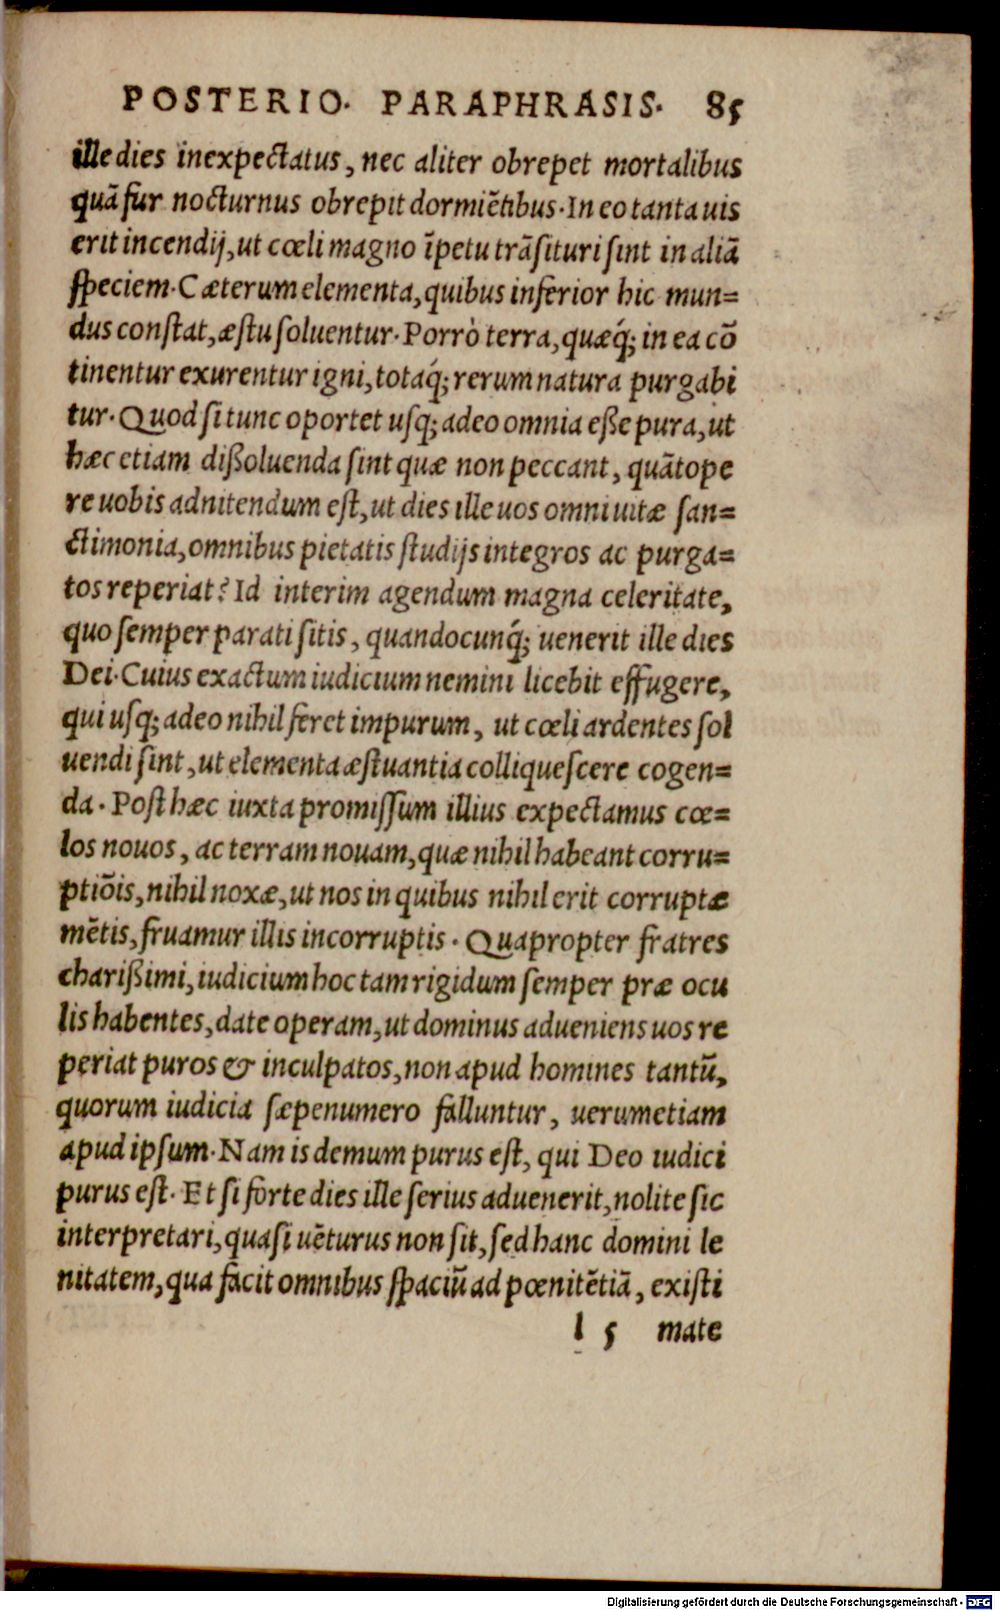 POSTERIO. PARAPHRASIS. 85
ille dies inexpectatus, nec aliter obrepet mortalibus
quā fur nocturnus obrepit dormiētibus. In eo tanta uis
erit incendij, ut cœli magno īpetu trāſituri ſint in aliā
ſpeciem. Cæterum elementa, quibus inferior hic mun=
dus conſtat, æſtu ſoluentur. Porrò terra, quæq́; in ea cō
tinentur exurentur igni, totaq́; rerum natura purgabi
tur. Quod ſi tunc oportet uſq; adeo omnia eße pura, ut
hæc etiam dißoluenda ſint quæ non peccant, quātope
re uobis adnitendum eſt, ut dies ille uos omni uitæ ſan=
ctimonia, omnibus pietatis ſtudijs integros ac purga=
tos reperiat? Id interim agendum magna celeritate,
quo ſemper parati ſitis, quandocunq́; uenerit ille dies
Dei. Cuius exactum iudicium nemini licebit effugere,
qui uſq; adeo nihil feret impurum, ut cœli ardentes ſol
uendi ſint, ut elementa æſtuantia colliqueſcere cogen=
da. Poſt hæc iuxta promiſſum illius expectamus cœ=
los nouos, ac terram nouam, quæ nihil habeant corru=
ptiōis, nihil noxæ, ut nos in quibus nihil erit corruptæ
mētis, fruamur illis incorruptis. Quapropter fratres
charißimi, iudicium hoc tam rigidum ſemper præ ocu
lis habentes, date operam, ut dominus adueniens uos re
periat puros & inculpatos, non apud homines tantū,
quorum iudicia ſæpenumero falluntur, uerumetiam
apud ipſum. Nam is demum purus eſt, qui Deo iudici
purus eſt. Et ſi forte dies ille ſerius aduenerit, nolite ſic
interpretari, quaſi uēturus non ſit, ſed hanc domini le
nitatem, qua facit omnibus ſpaciū ad pœnitētiā, exiſti
l 5 mate
Digitalisierung gefördert durch die Deutsche Forschungsgemeinschaft - DFG